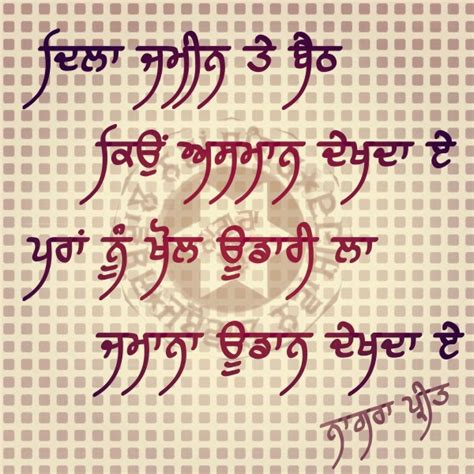 ਦਿਲਾ ਜਮੀਨ ਤੇ ਬੈਠ
ਕਿਉਂ ਅਸਮਾਨ ਦੇਖਦਾ ਏ
ਪਰਾਂ ਨੂੰ ਖੋਲ ਊਡਾਰੀ ਲਾ
ਜਮਾਨਾ ਊਡਾਨ ਦੇਖਦਾ ਏ
ਨਾਗਰਾ ਪ੍ਰੀਤ